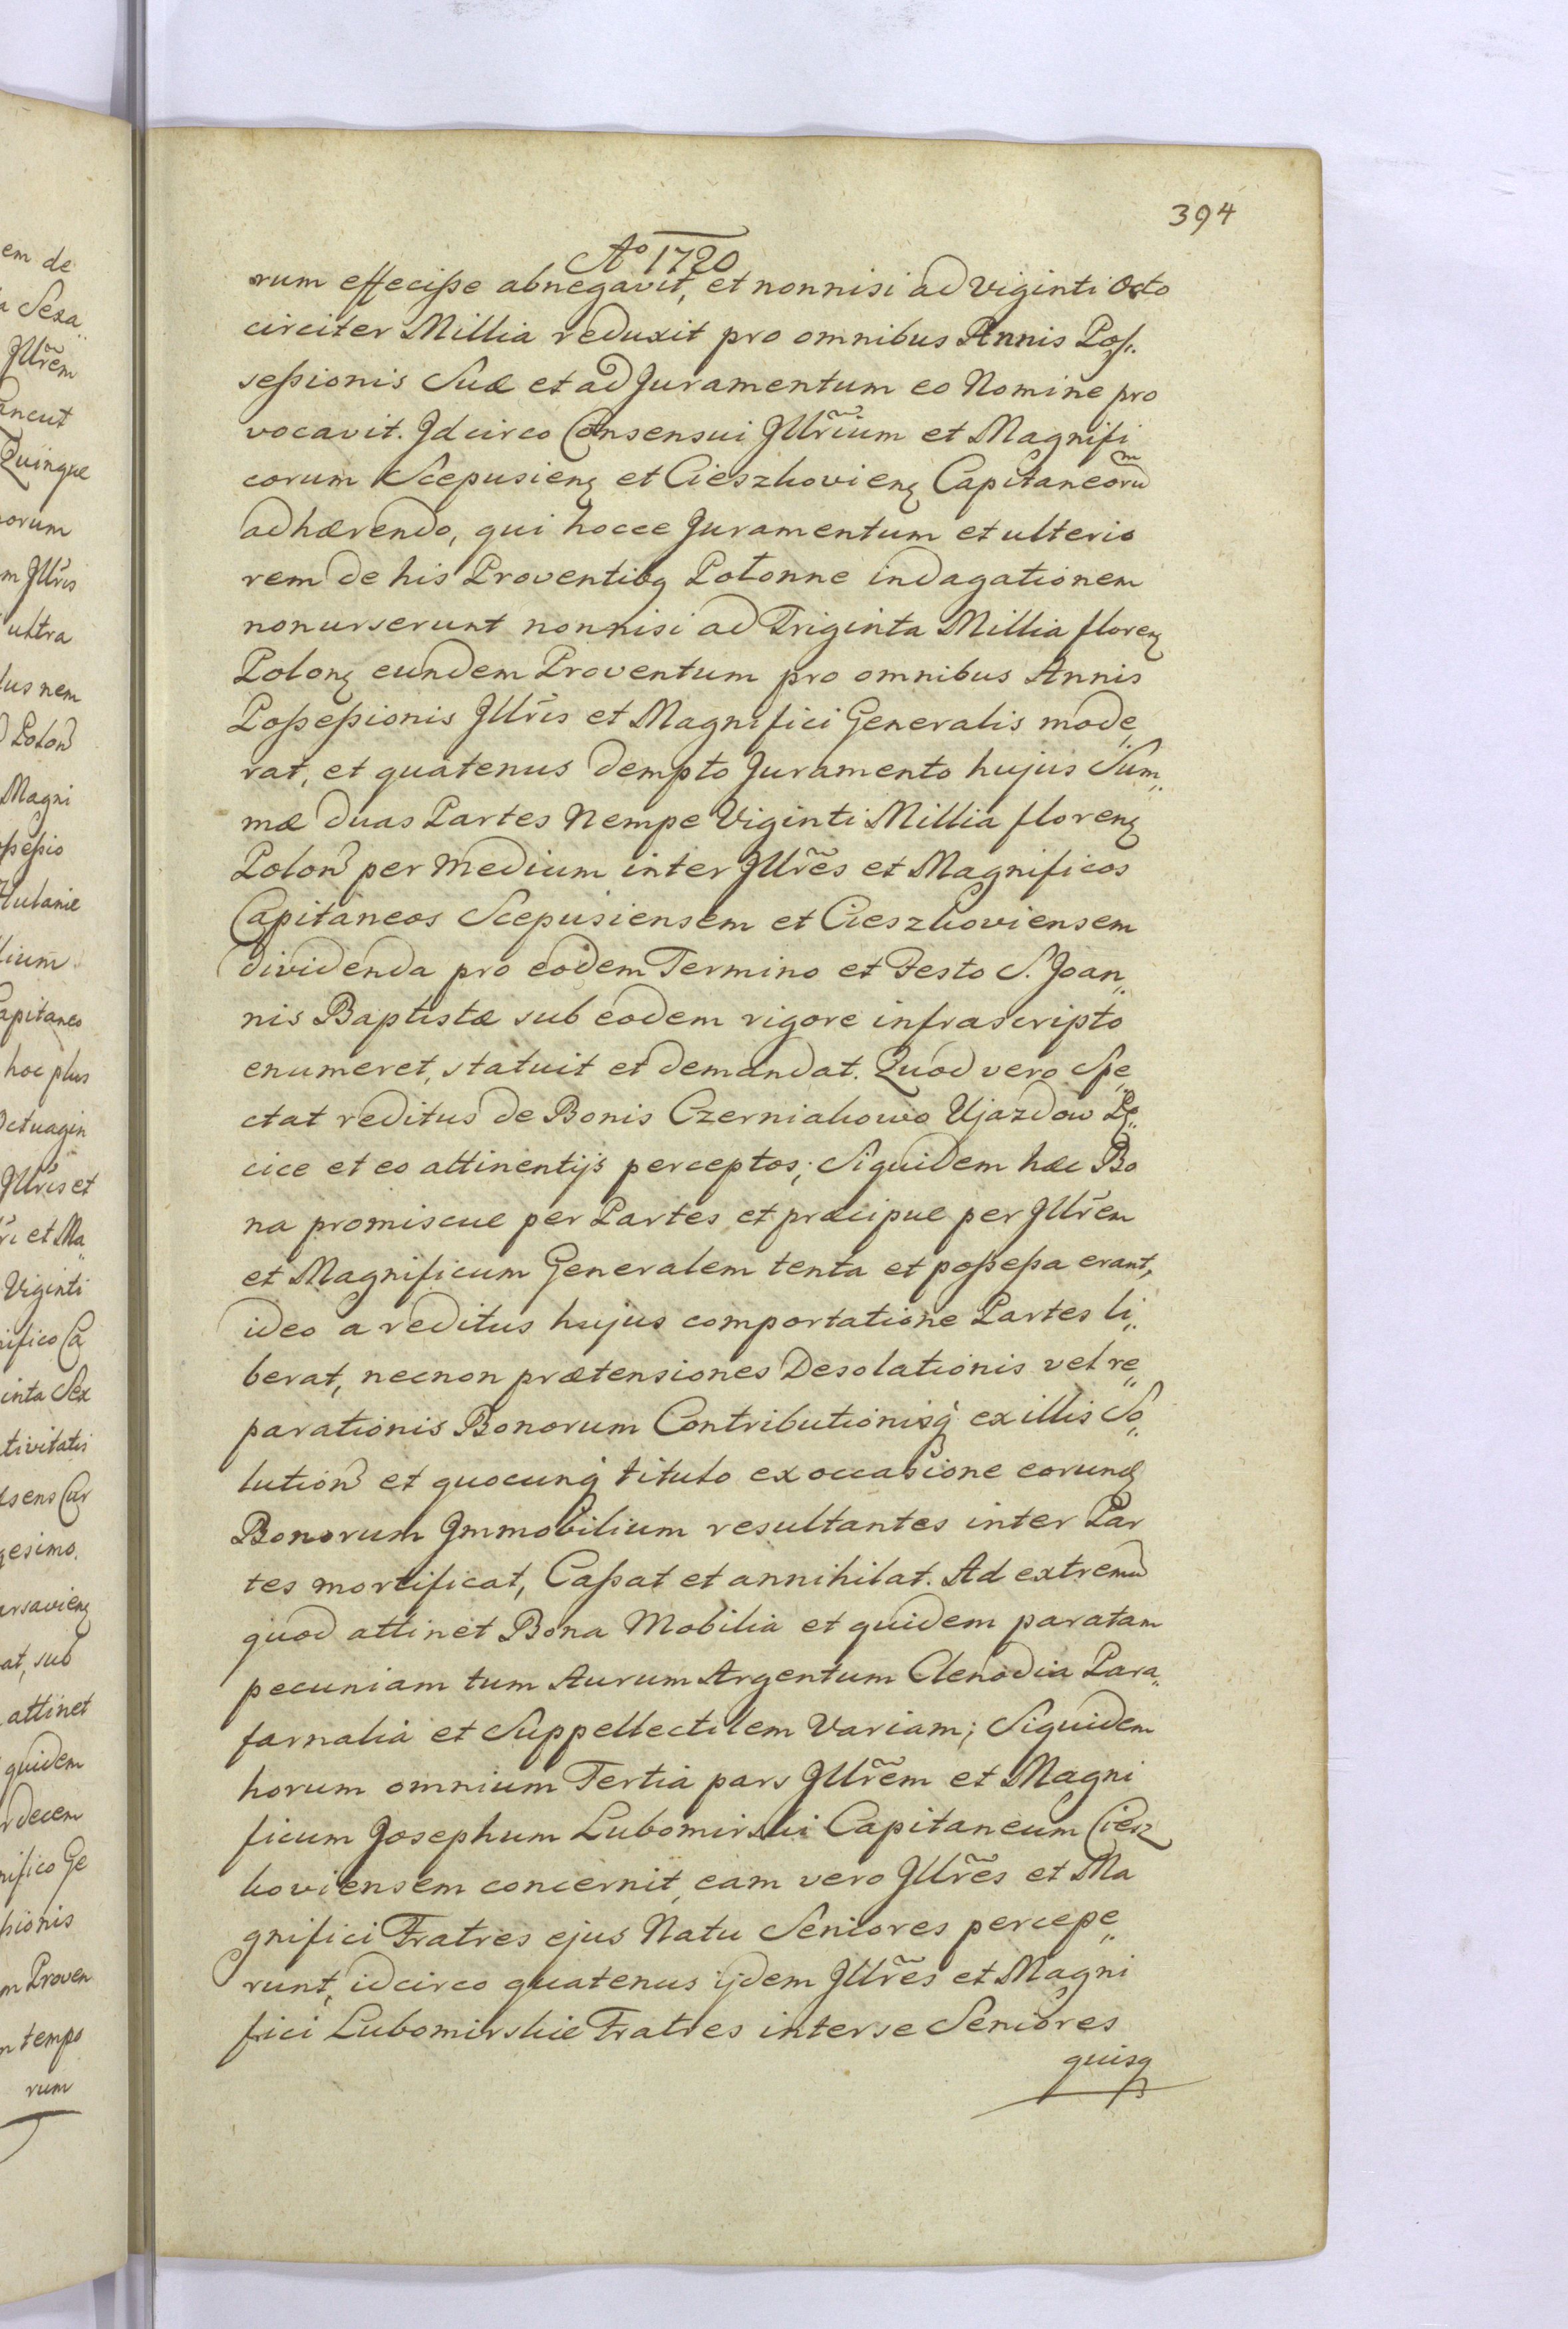 394
Aº 1720
rum effecisse abnegavit, et nonnisi ad Viginti Octo
circiter Millia reduxit pro omnibus Annis Pos:
sessionis Suæ et ad Juramentum eo Nomine pro
vocavit. Idcirco Consensui Illr̃ium et Magnifi
corum Scepusienꝫ et Cieszkovienꝫ Capitaneorum
adhærendo, qui hocce Juramentum et ulterio
rem de his Proventibꝫ Potonne indagationem
non urserunt nonnisi ad Triginta Millia florenꝫ
Polonꝫ eundem Proventum pro omnibus Annis
Possessionis Illris et Magnifici Generalis mode„
rat, et quatenus dempto Juramento hujus Sum„
mæ duas Partes Nempe Viginti Millia florenꝫ
Polon̄ per medium inter Illr̃es et Magnificos
Capitaneos Scepusiensem et Cieszkoviensem
dividenda pro eodem Termino et Festo S. Joan„
nis Baptistæ sub eodem rigore infrascripto
enumeret, statuit et demandat. Quod vero Spe„
ctat reditus de Bonis Czerniakowo Ujazdow Ję„
cice et eo attinentijs perceptos; Siquidem hæc Bo
na promiscue per Partes et præcipue per Illrem
et Magnificum Generalem tenta et possessa erant,
ideo a reditus hujus comportatione Partes li„
berat, necnon prætensiones Desolationis vel re„
parationis Bonorum Contributionisq̀ ex illis So„
lution̄ et quocunq̀ titulo ex occasione eorundꝫ
Bonorum Immobilium resultantes inter Par
tes mortificat, Cassat et annihilat. Ad extremū
quod attinet Bona Mobilia et quidem paratam
pecuniam tum Aurum Argentum Clenodia Para„
farnalia et Suppellectilem Variam; Siquidem
horum omnium Tertia pars Illr̃em et Magni
ficum Josephum Lubomirski Capitaneum Ciesz
koviensem concernit, eam vero Illr̃es et Ma
gnifici Fratres ejus Natu Seniores percepe„
runt, idcirco quatenus ijdem Illr̃es et Magni
fici Lubomirskie Fratres inter se Seniores
quisq